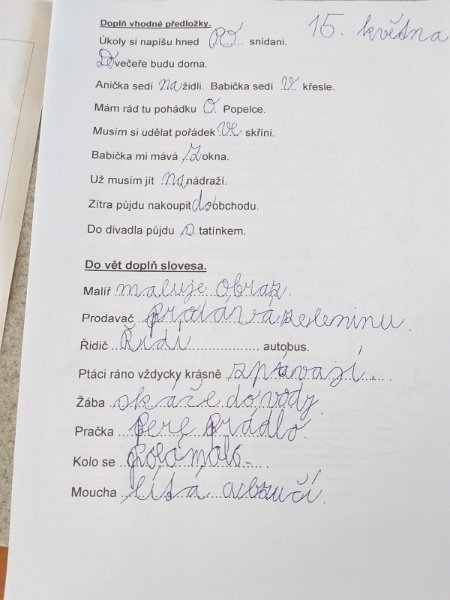 Doplň vhodné předložky. 15. května
Úkoly si napíšu hned Po... snídani.
Do večeře budu doma.
Anička sedí na židli. Babička sedí v křesle.
Mám rád tu pohádku o Popelce.
Musím si udělat pořádek ve skříni.
Babička mi mává z okna.
Už musím jít na nádraží.
Zítra půjdu nakoupit do obchodu.
Do divadla půjdu s tatínkem.
Do vět doplň slovesa.
Malíř maluje obraz.
Prodavač prodává zeleninu.
Řidič Řídí autobus.
Ptáci ráno vždycky krásně zpívazí...
Žába skáče do vody.
Pračka pere prádlo.
Kolo se polámalo.
Moucha lítá a bzučí.